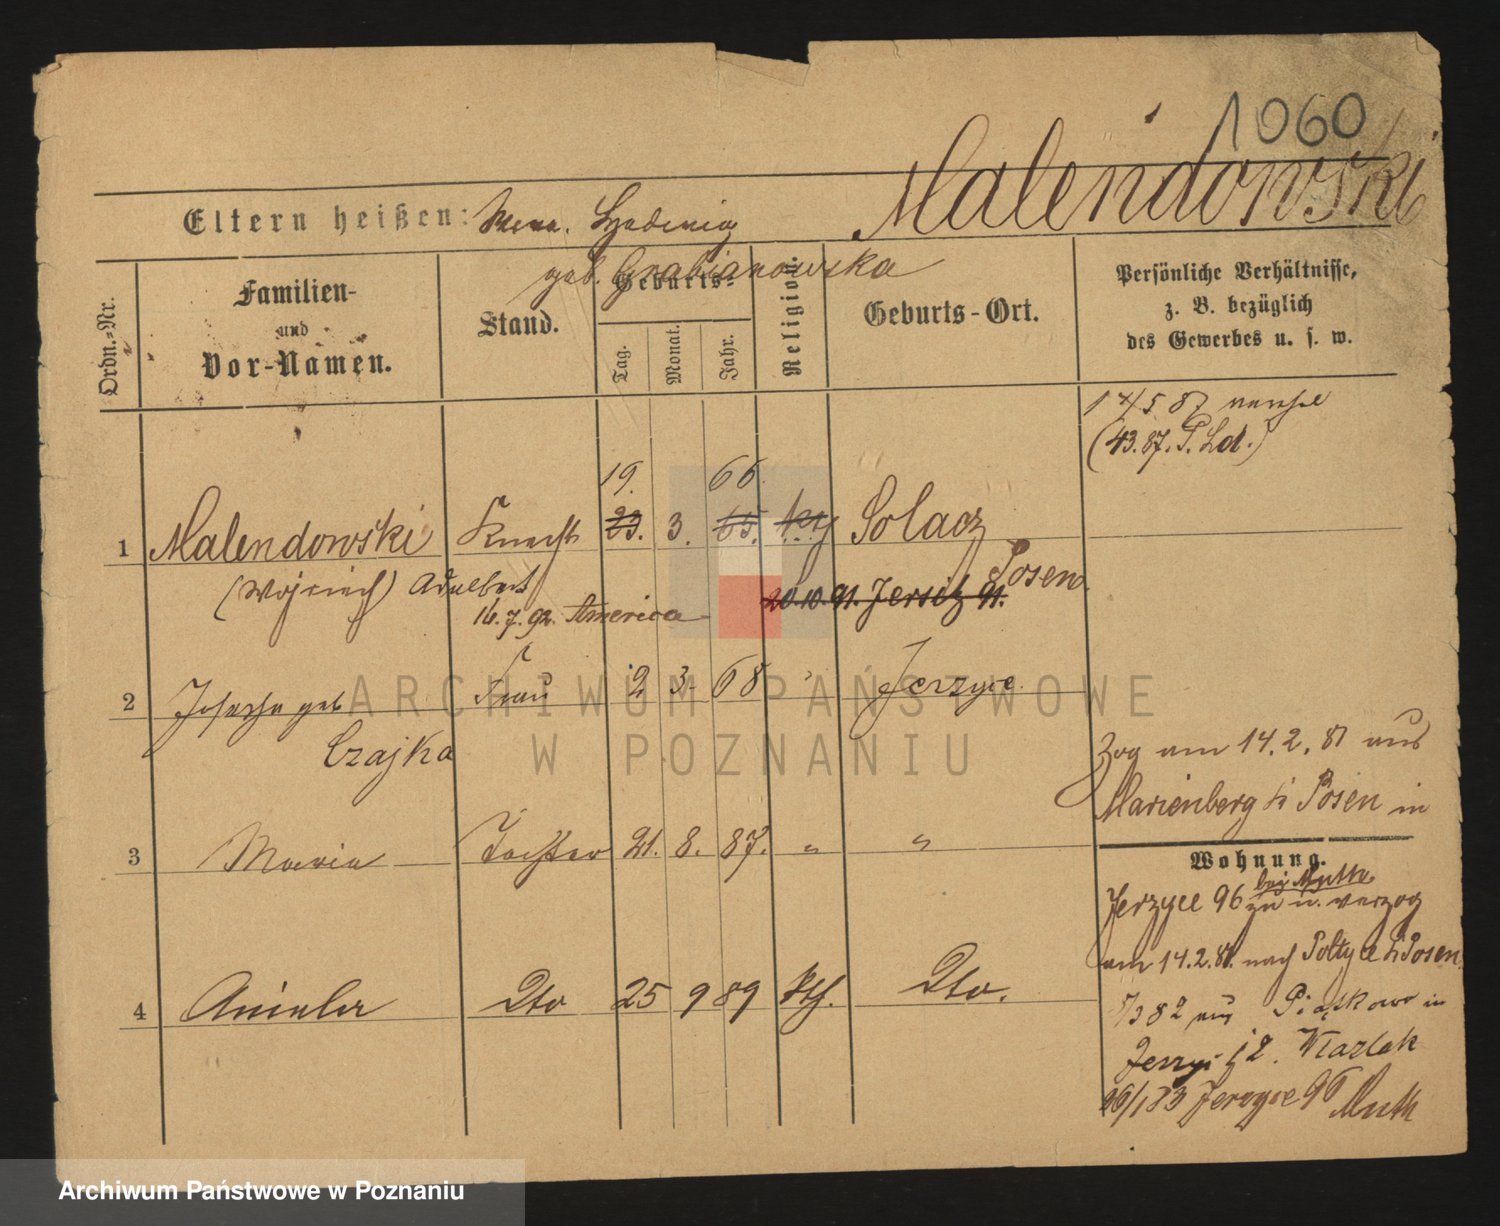 1060
Malendowski
Eltern heißen: Hedwig
geb. Grabianowska
Ordn.-Nr.
Familien-
und
Vor-Namen.
Stand.
Geburts-
Tag.
Monat.
Jahr.
Religion.
Geburts-Ort.
Persönliche Verhältnisse,
z. B. bezüglich
des Gewerbes u. s. w.
(43.87. P. Ld.)
19. 66.
1 Malendowski Knecht 23. 3. 65. kth Solacz
Posen.
(Wojciech) Adalbert
20.10.91. Jersitz 91.
16.7.92. America
2 Josepha geb Frau 2 3. 68 " Jerzyce
Czajka
Zog am 14.2.81 aus
Marienberg b Posen in
3 Maria Tochter 21. 8. 87. " "
Wohnung.
bei Muth
Jerzyce 96 zu u. verzog
am 14.2.81. nach Soltyce b Posen
4 Aniela Dto 25 9 89 kth. Dto.
5/3 82 aus Piątkowo in
Jerzyce 12. Wlazlak
26/1 83 Jerzyce 96 Muth
ARCHIWUM PAŃSTWOWE
W POZNANIU
Archiwum Państwowe w Poznaniu